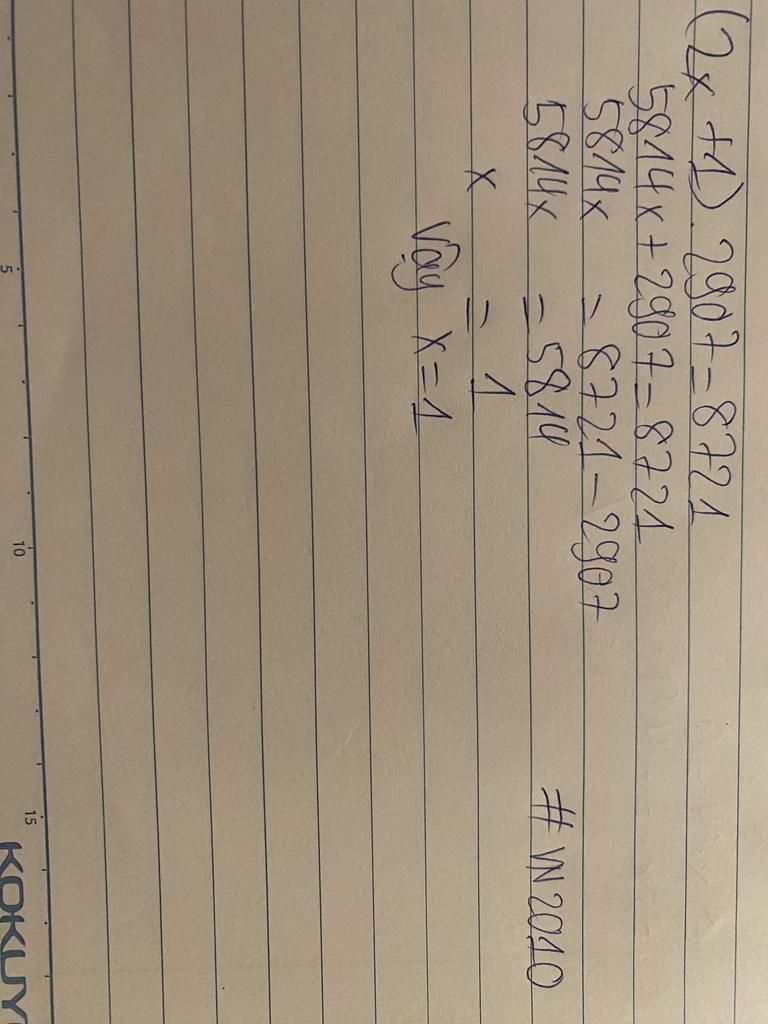 (2x +1). 2907 = 8721
5814x + 2907 = 8721
5814x = 8721 - 2907
5814x = 5814
x = 1
Vậy x = 1
# VN2010
5
10
15
KOKUY